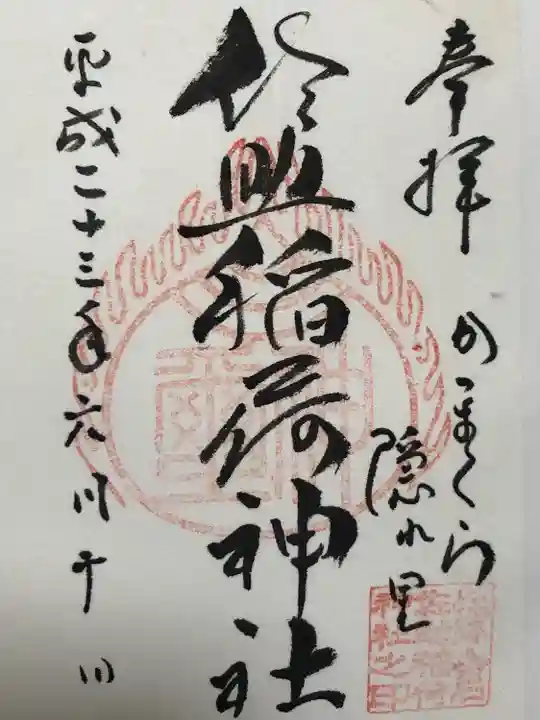 奉拝
かまくら
隠れ里
佐助稲荷神社
平成二十三年六月十日